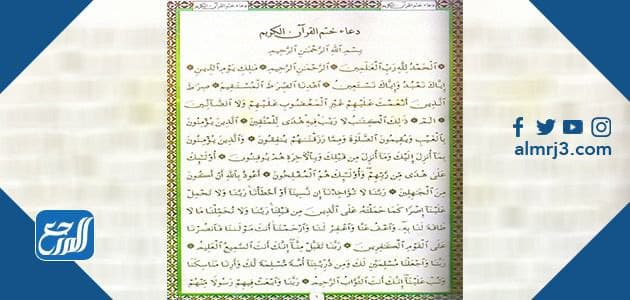 دعاء ختم القرآن الكريم
دعاء ختم القرآن الكريم
دعاء ختم القرآن الكريم
بِسْمِ اللَّهِ الرَّحْمَٰنِ الرَّحِيمِ
الْحَمْدُ لِلَّهِ رَبِّ الْعَالَمِينَ * الرَّحْمَٰنِ الرَّحِيمِ * مَالِكِ يَوْمِ الدِّينِ *
إِيَّاكَ نَعْبُدُ وَإِيَّاكَ نَسْتَعِينُ * اهْدِنَا الصِّرَاطَ الْمُسْتَقِيمَ * صِرَاطَ
الَّذِينَ أَنْعَمْتَ عَلَيْهِمْ غَيْرِ الْمَغْضُوبِ عَلَيْهِمْ وَلَا الضَّالِّينَ
* الم * ذَٰلِكَ الْكِتَابُ لَا رَيْبَ فِيهِ هُدًى لِلْمُتَّقِينَ * الَّذِينَ يُؤْمِنُونَ
بِالْغَيْبِ وَيُقِيمُونَ الصَّلَوٰةَ وَمِمَّا رَزَقْنَاهُمْ يُنْفِقُونَ * وَالَّذِينَ يُؤْمِنُونَ
بِمَا أُنْزِلَ إِلَيْكَ وَمَا أُنْزِلَ مِنْ قَبْلِكَ وَبِالْآخِرَةِ هُمْ يُوقِنُونَ * أُولَٰئِكَ
عَلَىٰ هُدًى مِنْ رَبِّهِمْ وَأُولَٰئِكَ هُمُ الْمُفْلِحُونَ * أَعُوذُ بِاللَّهِ أَنْ أَكُونَ
مِنَ الْجَاهِلِينَ * رَبَّنَا لَا تُؤَاخِذْنَا إِنْ نَسِينَا أَوْ أَخْطَأْنَا رَبَّنَا وَلَا تَحْمِلْ
عَلَيْنَا إِصْرًا كَمَا حَمَلْتَهُ عَلَى الَّذِينَ مِنْ قَبْلِنَا رَبَّنَا وَلَا تُحَمِّلْنَا مَا لَا
طَاقَةَ لَنَا بِهِ وَاعْفُ عَنَّا وَاغْفِرْ لَنَا وَارْحَمْنَا أَنْتَ مَوْلَانَا فَانْصُرْنَا
عَلَى الْقَوْمِ الْكَافِرِينَ * رَبَّنَا تَقَبَّلْ مِنَّا إِنَّكَ أَنْتَ السَّمِيعُ الْعَلِيمُ *
رَبَّنَا وَاجْعَلْنَا مُسْلِمَيْنِ لَكَ وَمِنْ ذُرِّيَّتِنَا أُمَّةً مُسْلِمَةً لَكَ وَأَرِنَا مَنَاسِكَنَا
وَتُبْ عَلَيْنَا إِنَّكَ أَنْتَ التَّوَّابُ الرَّحِيمُ * رَبَّنَا وَابْعَثْ فِيهِمْ رَسُولًا مِنْهُمْ
almrj3.com
المرجع